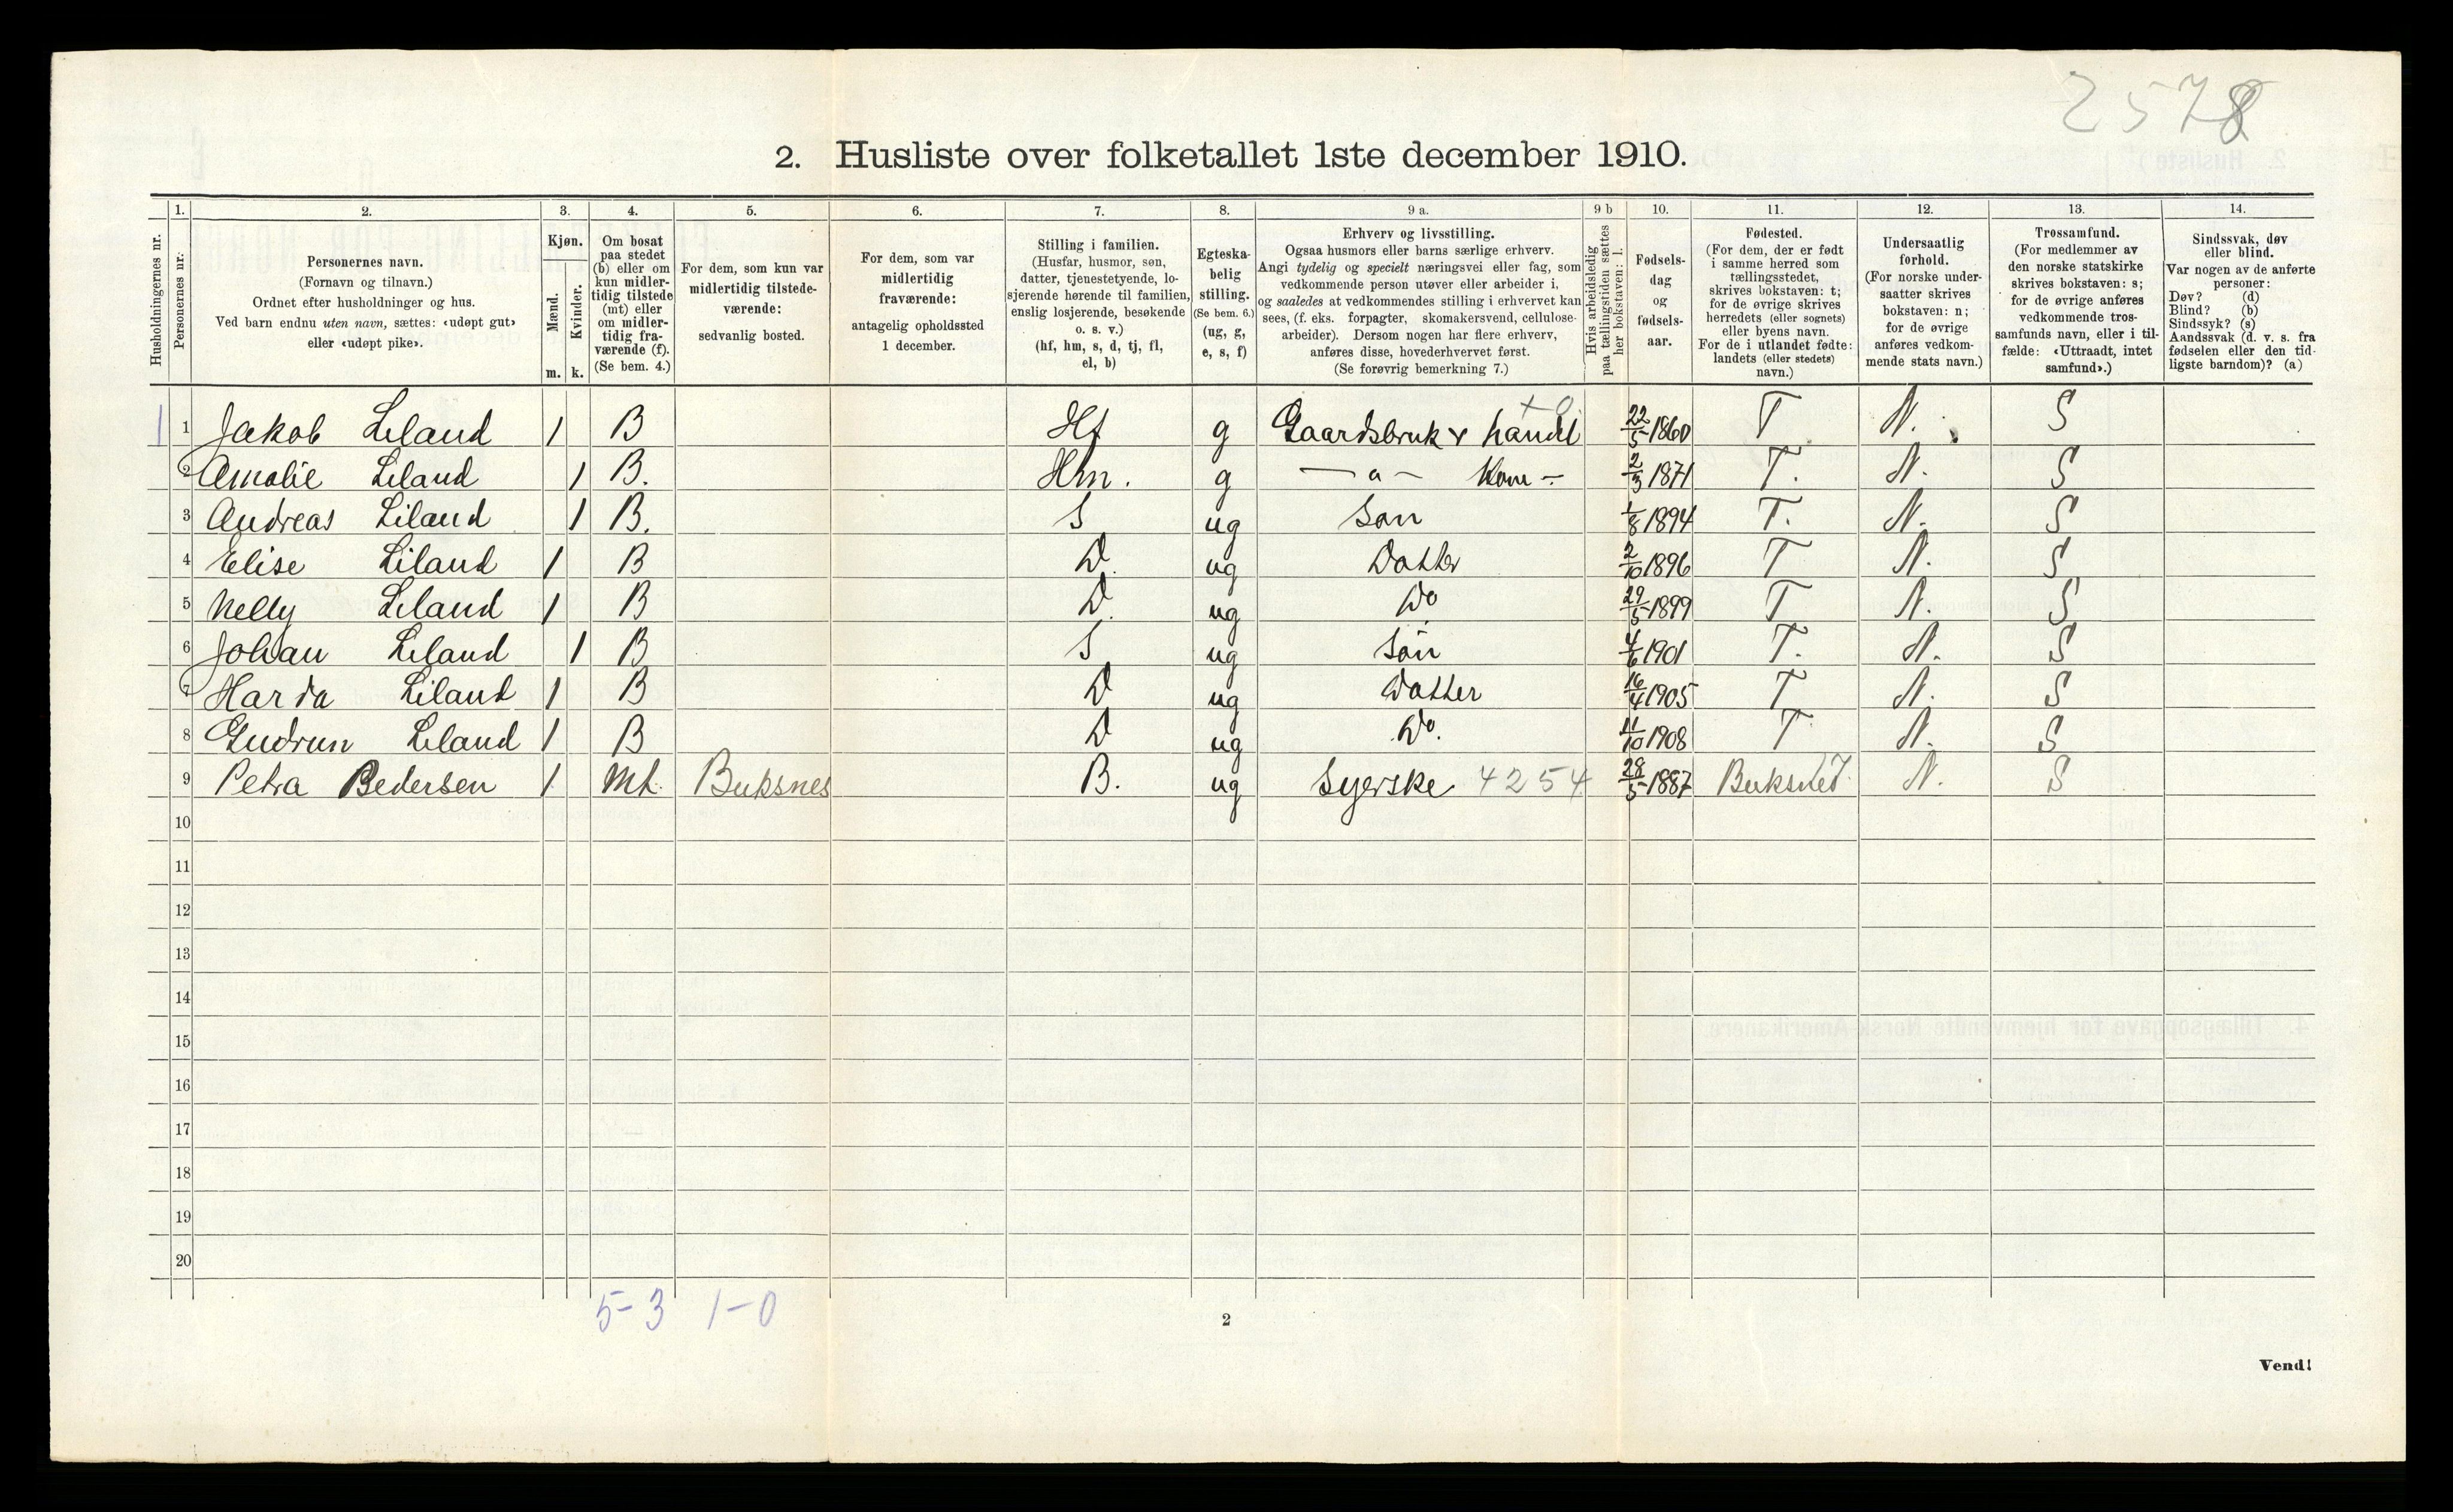 2578
2. Husliste over folketallet 1ste december 1910.
Husholdningernes nr.
1. Personernes nr.
2. Personernes navn.
(Fornavn og tilnavn.)
Ordnet efter husholdninger og hus.
Ved barn endnu uten navn, sættes: «udøpt gut»
eller «udøpt pike».
3. Kjøn.
Mænd. Kvinder.
m. k.
4. Om bosat
paa stedet
(b) eller om
kun midler-
tidig tilstede
(mt) eller
om midler-
tidig fra-
værende (f).
(Se bem. 4.)
5. For dem, som kun var
midlertidig tilstede-
værende:
sedvanlig bosted.
6. For dem, som var
midlertidig
fraværende:
antagelig opholdssted
1 december.
7. Stilling i familien.
(Husfar, husmor, søn,
datter, tjenestetyende, lo-
sjerende hørende til familien,
enslig losjerende, besøkende
o. s. v.)
(hf, hm, s, d, tj, fl,
el, b)
8. Egteska-
belig
stilling.
(Se bem. 6.)
(ug, g,
e, s, f)
9 a. Erhverv og livsstilling.
Ogsaa husmors eller barns særlige erhverv.
Angi tydelig og specielt næringsvei eller fag, som
vedkommende person utøver eller arbeider i,
og saaledes at vedkommendes stilling i erhvervet kan
sees, (f. eks. forpagter, skomakersvend, cellulose-
arbeider). Dersom nogen har flere erhverv,
anføres disse, hovederhvervet først.
(Se forøvrig bemerkning 7.)
9 b Hvis arbeidsledig
paa tællingstiden sættes
her bokstaven: l.
10. Fødsels-
dag
og
fødsels-
aar.
11. Fødested.
(For dem, der er født
i samme herred som
tællingsstedet,
skrives bokstaven: t;
for de øvrige skrives
herredets (eller sognets)
eller byens navn.
For de i utlandet fødte:
landets (eller stedets)
navn.)
12. Undersaatlig
forhold.
(For norske under-
saatter skrives
bokstaven: n;
for de øvrige
anføres vedkom-
mende stats navn.)
13. Trossamfund.
(For medlemmer av
den norske statskirke
skrives bokstaven: s;
for de øvrige anføres
vedkommende tros-
samfunds navn, eller i til-
fælde: «Uttraadt, intet
samfund».)
14. Sindssvak, døv
eller blind.
Var nogen av de anførte
personer:
Døv? (d)
Blind? (b)
Sindssyk? (s)
Aandssvak (d. v. s. fra
fødselen eller den tid-
ligste barndom)? (a)
1 1 Jakob Liland 1 B Hf g Gaardsbruk & handel +0 22/5 1860 T N. S
2 Amalie Liland 1 B. Hm. g — a — Kone - 2/3 1871 T. N. S
3 Andreas Liland 1 B. S ug Søn 1/8 1894 T. N. S
4 Elise Liland 1 B D. ug Datter 2/10 1896 T N. S
5 Nelly Liland 1 B D. ug Do 29/5 1899 T N. S
6 Johan Liland 1 B S ug Søn 4/6 1901 T. N. S
7 Harda Liland 1 B D ug Datter 16/4 1905 T N. S
8 Gudrun Liland 1 B D ug Do. 11/10 1908 T N. S
9 Petra Pedersen 1 Mt. Buksnes B. ug Syerske 4254 28/5 1887 Buksnes N. S
10
11
12
13
14
15
16
17
18
19
20
5-3 1-0
2
Vend!